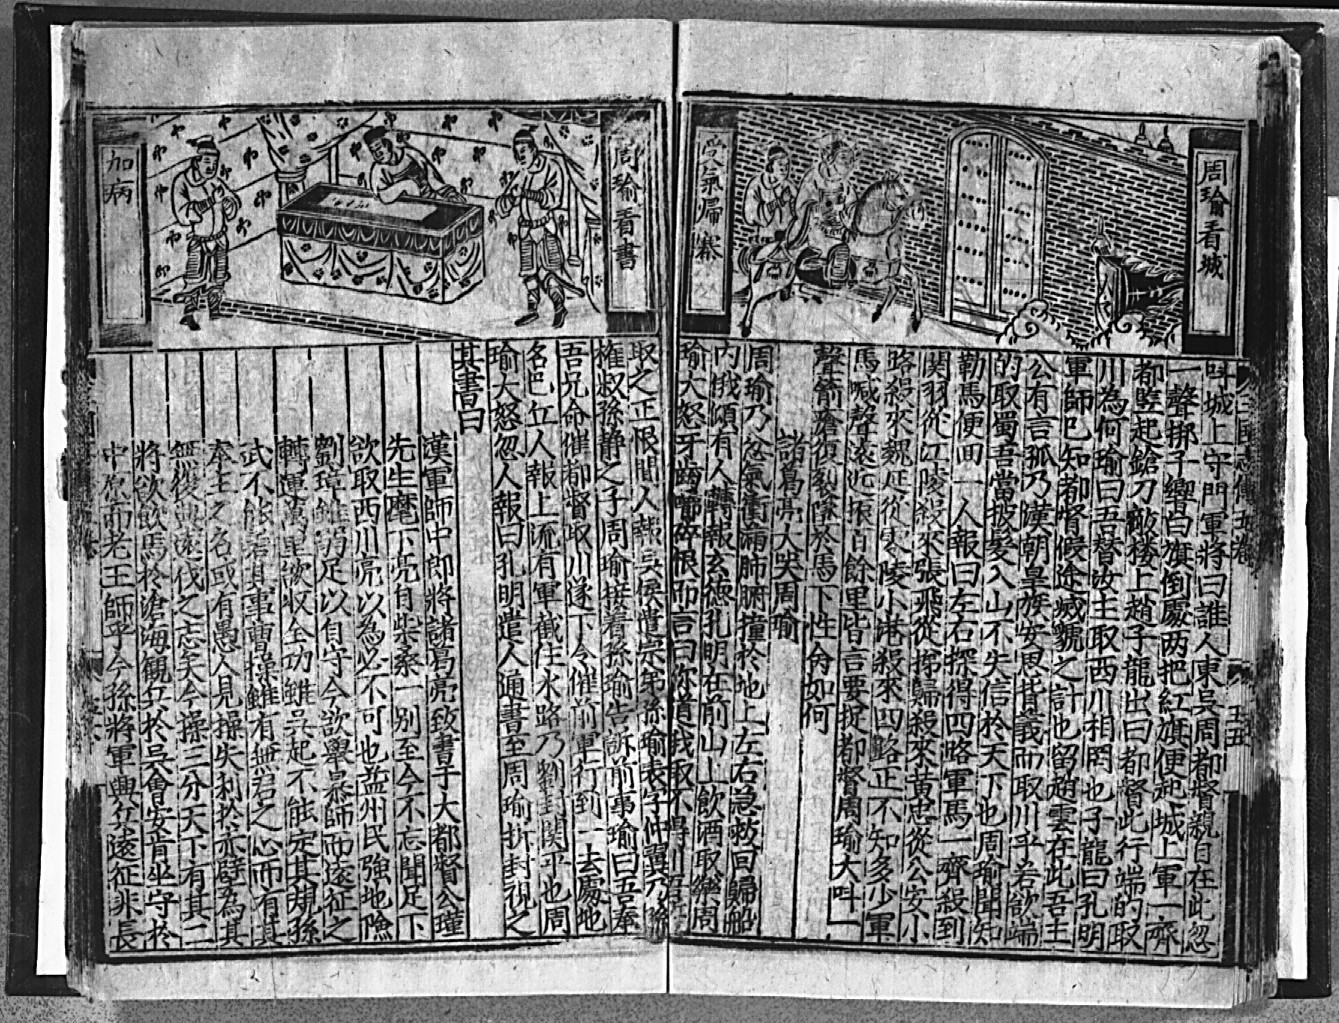 周瑜看城
受氣歸寨
叫城上守門軍將曰誰人東吳周都督親自在此忽
一聲梆子響白旗倒處两把紅旗便起城上軍一齊
都竪起鎗刀敵楼上趙子龍出曰都督此行端的取
川為何瑜曰吾替汝主取西川相罔也子龍曰孔明
軍師已知都督假途滅虢之計也留趙雲在此吾主
公有言孤乃漢朝皇族安思背義而取川乎若欲端
的取蜀吾當披髮入山不失信於天下也周瑜聞知
勒馬便回一人報曰左右探得四路軍馬一齊殺到
関羽從江陵殺來張飛從秭歸殺來黃忠從公安小
路殺來魏延從零陵小路殺來四路正不知多少軍
馬喊聲遠近振百餘里皆言要捉都督周瑜大叫一
聲箭瘡復裂墜於馬下性命如何
諸葛亮大哭周瑜
周瑜乃忿氣衝滿肺腑撞於地上左右急救回歸船
內俄傾有人轉報玄德孔明在前山上飲酒取樂周
瑜大怒牙齒嚼碎恨而言曰你道我取不得川吾
三國志傳 五卷
五五
周瑜看書
加病
取之正恨間人報吳侯遣宗弟孫瑜表字仲異乃孫
權叔孫静之子周瑜接着孫瑜告訴前事瑜曰吾奉
吾兄命催都督取川遂下令催前軍行到一去處地
名巴丘人報上流有軍截住水路乃劉封関平也周
瑜大怒忽人報曰孔明遣人通書至周瑜拆封視之
其書曰
漢軍師中郎將諸葛亮致書于大都督公瑾
先生麾下亮自柴桑一別至今不忘聞足下
欲取西川亮以為必不可也益州民強地險
劉璋雖弱足以自守今欲舉暴師而遠征之
轉運萬里欲收全功雖吳起不能定其規孫
武不能善其事曹操雖有無君之心而有其
奉主之名或有愚人見操失利於赤壁為其
無復興遠伐之志矣今操三分天下有其二
將欲飲馬於滄海観兵於吳會安肯坐守於
中原而老王師乎今孫將軍興兵遠征非長